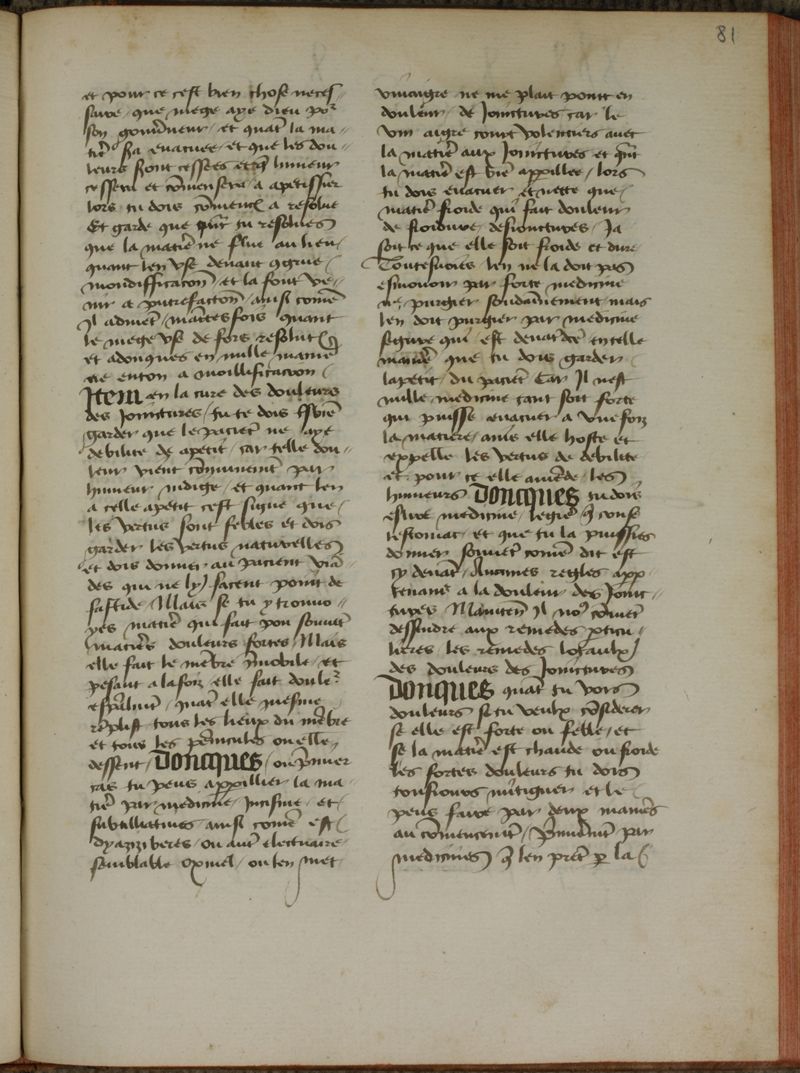 81
et pour ce cest bien chose neces
saire que mege aye dieu por
son gouverneur et quat la ma
tie sa evacuee et que les dou
leurs sont cessees et humeur
cessera et comensera a apetissier
lors tu dois comencer a resolve
Et garde que quat tu resolves
que la matie ne flue au lieu
quant len use devant
mondifficacon et la font ve
nir a putrefacton ainsi come
Il advient maintesfois quant
le mege use de fors resolut
et adonques en nulle manie
ne enton a moillificacion
Item en la cure des douleurs
des Joinctures tu te dois bien
garder que le paciet ne aye
debilite de apetit car telle dou
leur vient communemt par
humeur indige et quant len
a celle apetit cest signe que
les vertus sont febles et dois
garder les vertus naturelles
et dois donner au pacient via
des qui ne ly facent point de
fastide Mais se tu y trouvo
yes matie qui fait pou souvet
matieres douleurs fortes Mais
elle fait le mebre imobile et
pesant a la foiz elle fait doule
quat elle mesme
replist tous les lieux du mebre
et tous les panicules ou elle
dessent Doncques ou premier
cas tu peus appillier la ma
tie par medicine incisive et
subtilliatives ainsi come est
dyazinziberes ou aut electuaire
semblable Oximel ou len met
vinaigre ne me plait point en
douleur de Joinctures car le
vin aigre court volentiers avec
la matie aux Joinctures et quat
la matie est bie appillee lors
tu dois evacuer et nette que
matie froide qui fait douleur
de froidure desionctures Ja
soit ce que elle soit froide et dure
Toutesvoies len ne la doit pas
esmovoir par forte medicine
ne purgier soudainement mais
len doit purgier par medicine
figure qui est devat dce en telle
manie que tu dois garder
lapetit du paciet Car Il nest
nulle medicine tant soit forte
qui puisse evacuer a une foiz
la matiere ains elle hoste et
expelle les vertus de debilite
et pour ce elle les
humeurs Doncques tu dois
estive medicine legie confo
lestomac et que tu la puisses
donner souvet come dit est
cy devat Aucunes regles app
tenans a la douleur des Joinc
tures Maintent Il nos coviet
dessendre aux remedes pticu
lieres les remedes loyaulx
des douleurs des Joinctures
Donques quat tu voys
douleurs se tu veulx considerer
se elle est forte ou feble et
se la matie est chaude ou froide
les fortes douleurs tu dois
tousiours mitiguer et le
peus faire par deux manies
au comencemt premiemt par
medicines que len pret p la